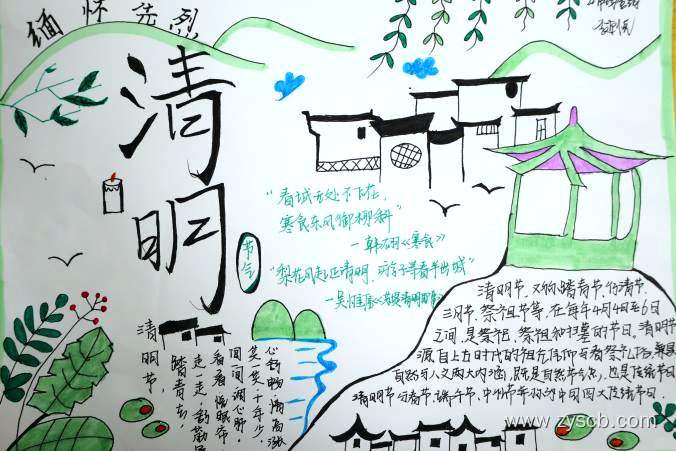 缅怀先烈
清明
节气
"春城无处不飞花,
寒食东风御柳斜"
—韩翃《寒食》
"梨花风起正清明,游子寻春半出城"
—吴惟信《苏堤清明即事》
清明节,又叫踏青节,行清节,
三月节,祭祖节等,在每年4月4日至6日
之间,是祭祀、祭祖和扫墓的节日。清明节
源自上古时代的祖先信仰与春祭礼俗,兼具
自然与人文两大内涵,既是自然节气点,也是传统节日
清明节与春节、端午节、中秋节并称为中国四大传统节日.
清明节,
踏青去,
走一走 舒筋
看看 悟眠
问一问 调心肺,
笑一笑 十年少,
心舒畅 情高涨
www.zyscb.com